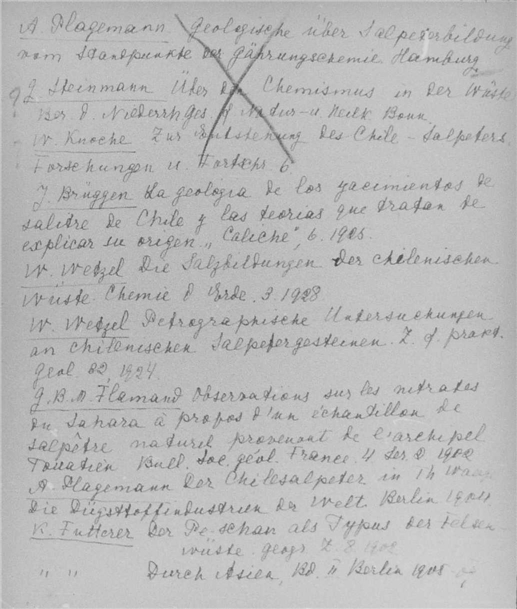 A Plagemann Geologische über Salpeterbildung
vom Standpunkte der Gährungschemie Hamburg
J. Steinmann Über den Chemismus in der Wüste
Ber. d. Niederrh Ges. f Natur- u. Heilk Bonn,
W. Knoche Zur Entstehung des Chile-Salpeters,
Forschungen u. Fortschr. 6
J. Brüggen La geologia de los yacimientos de
salitre de Chile y las teorias que tratan de
explicar su origen „Caliche", 6. 1925.
W. Wetzel Die Salzbildungen der chilenischen
Wüste Chemie d Erde. 3. 1928
W. Wetzel Petrographische Untersuchungen
an chilenischen Salpetergesteinen. Z. f. prakt.
geol. 32, 1924.
G. B. M. Flamand Observations sur les nitrates
du Sahara à propos d'un échantillon de
salpêtre naturel provenont de l'archipel
Touatien Bull. Soc. géol. France. 4 Ser 2 1902
A. Plagemann Der Chilesalpeter in
Die Düngstoffindustrien der Welt. Berlin 1904
K. Futterer Der Pe-schan als Typus der Felsen
wüste. geogr. Z. 8. 1902
" " Durch Asien, Bd. II Berlin 1905